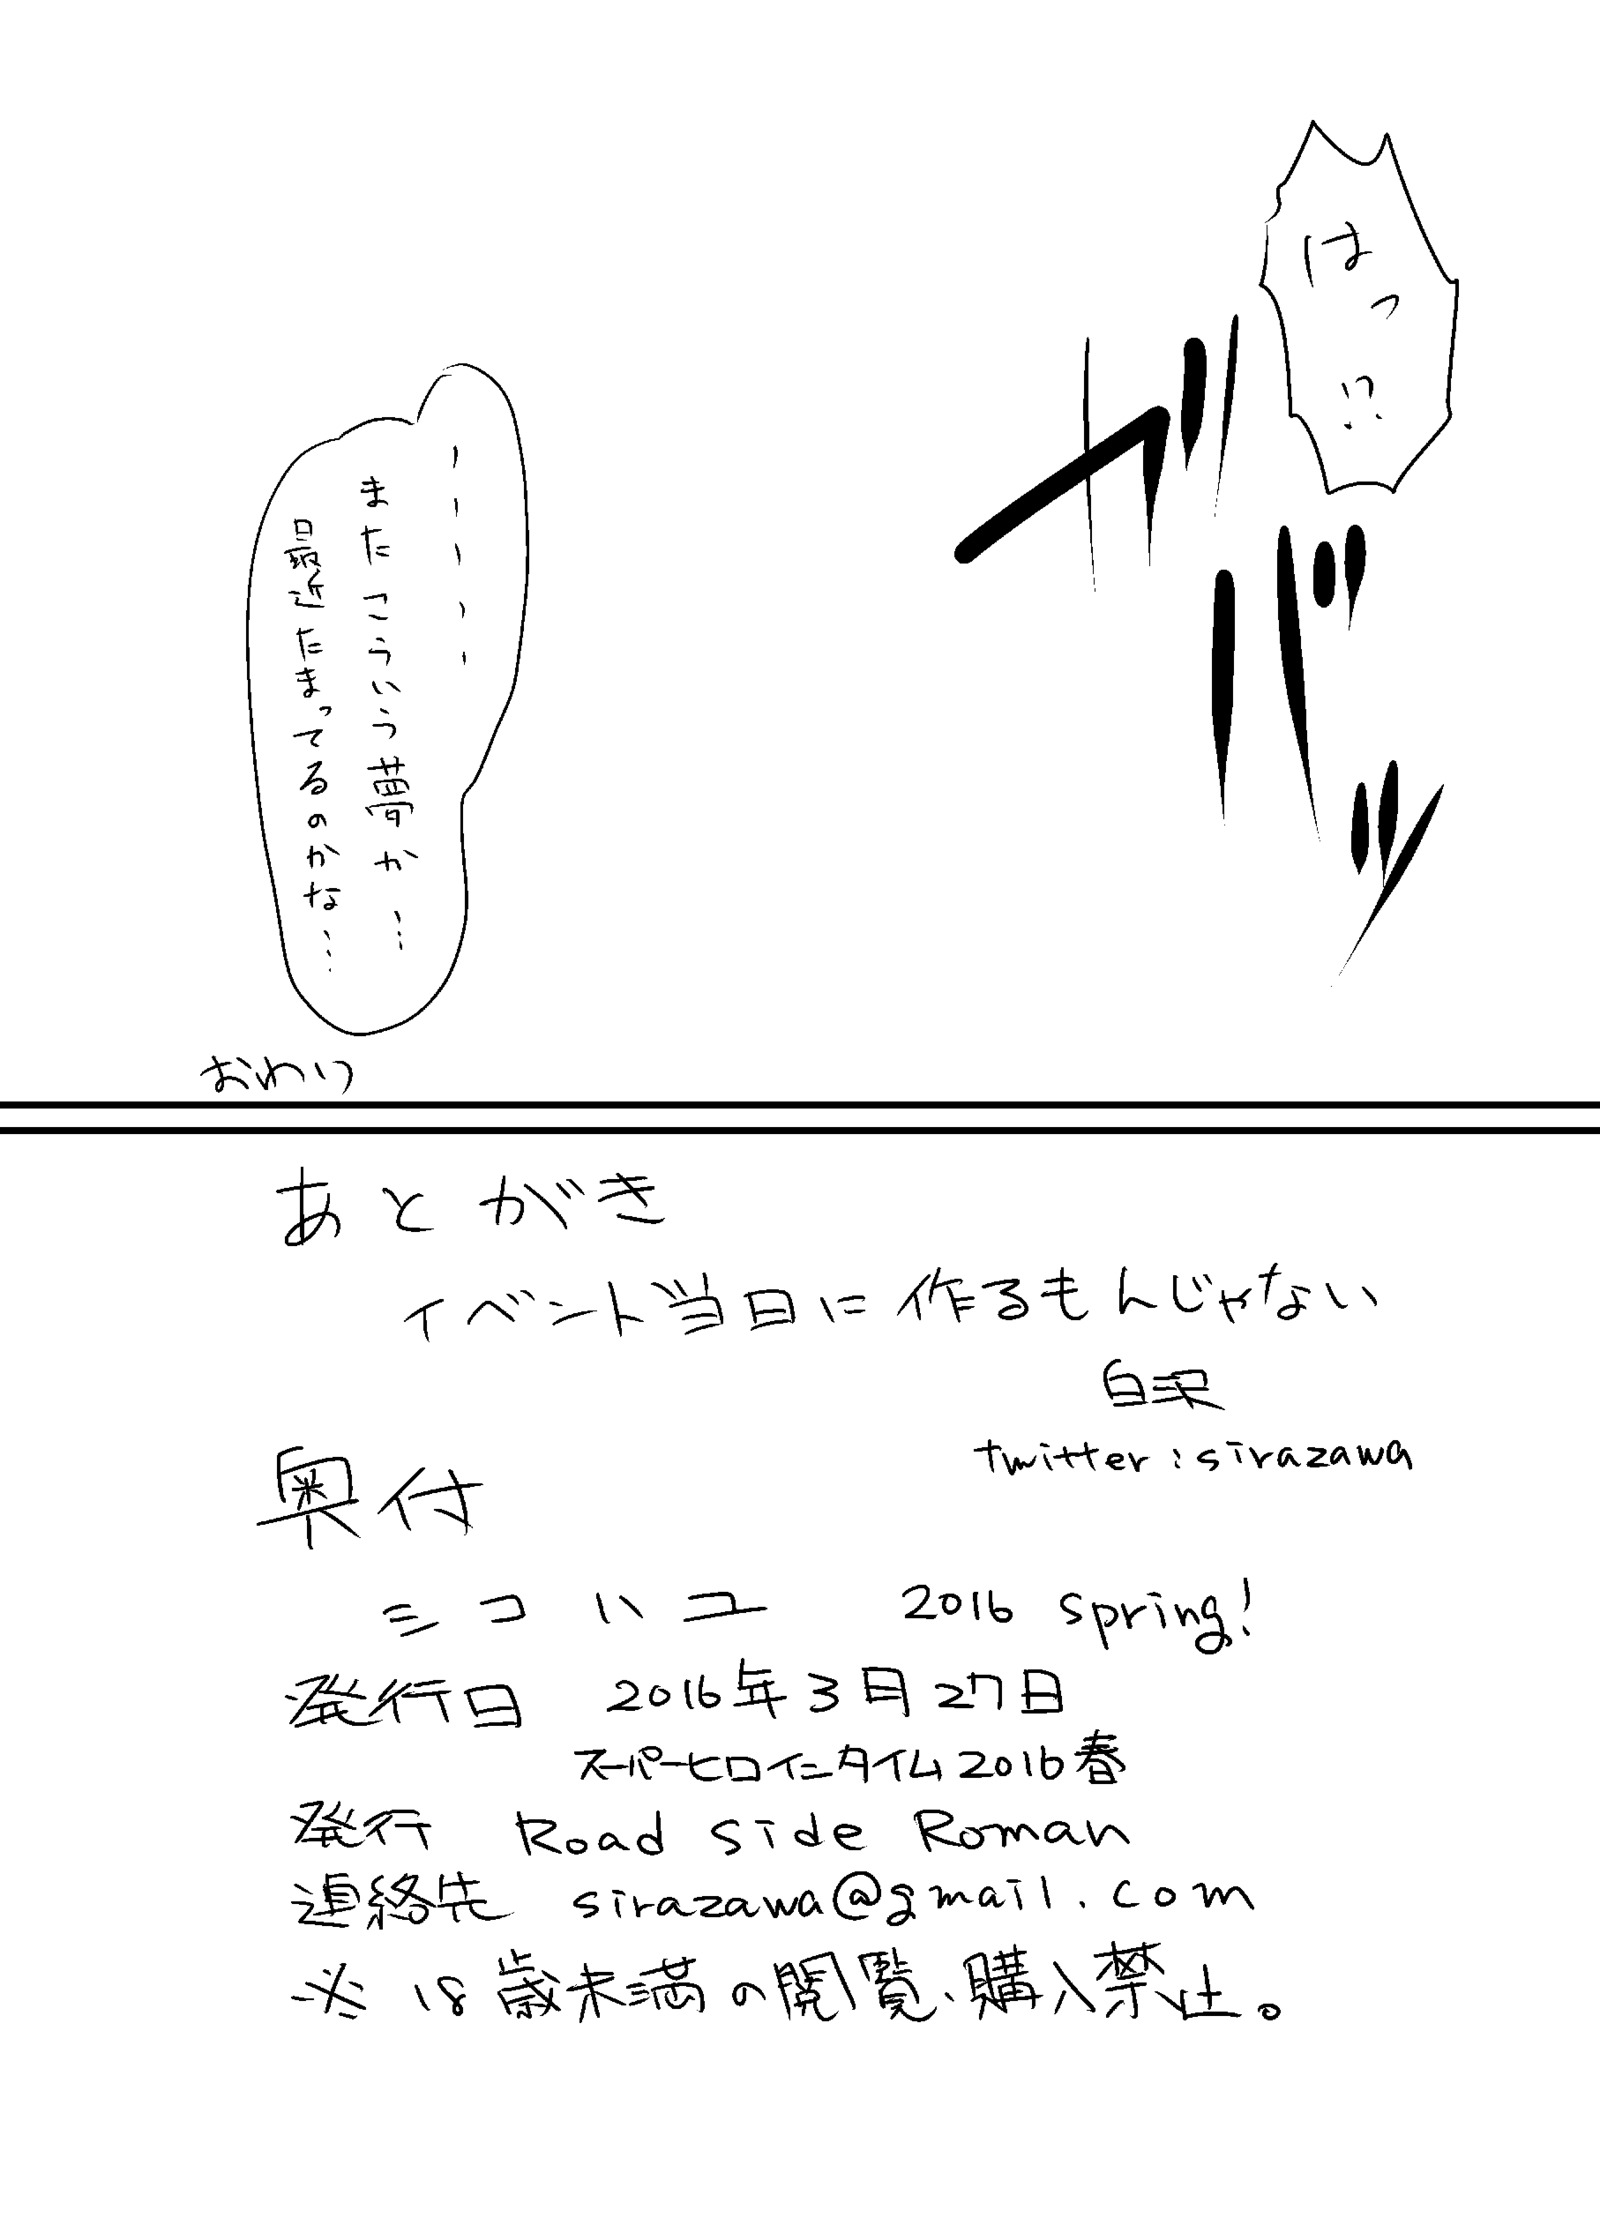 はっ!?
ガバッ
…………
またこういう夢か…
最近たまってるのかな…
おわり
あとがき
イベント当日に作るもんじゃない
白沢
twitter:sirazawa
奥付
シコハユ 2016 spring!
発行日 2016年3月27日
スーパーヒロインタイム2016春
発行 Road side Roman
連絡先 sirazawa@gmail.com
※18歳未満の閲覧、購入禁止。